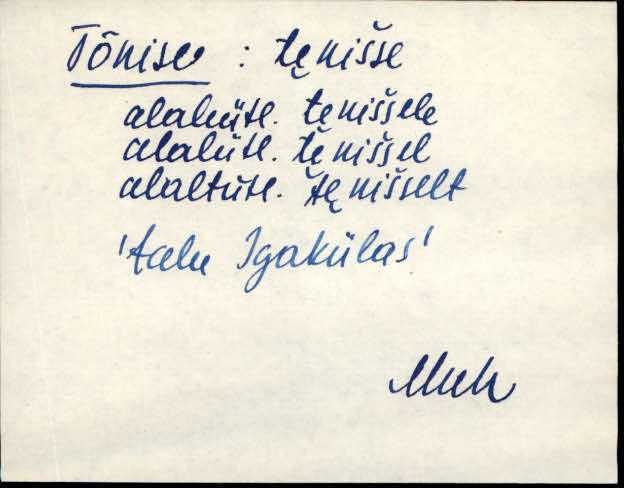 Tõnise : tęnišse
alaleütl. tęniššele
alalütl. tęniššel
alaltütl. tęniššelt
'talu Igakülas'
Muh